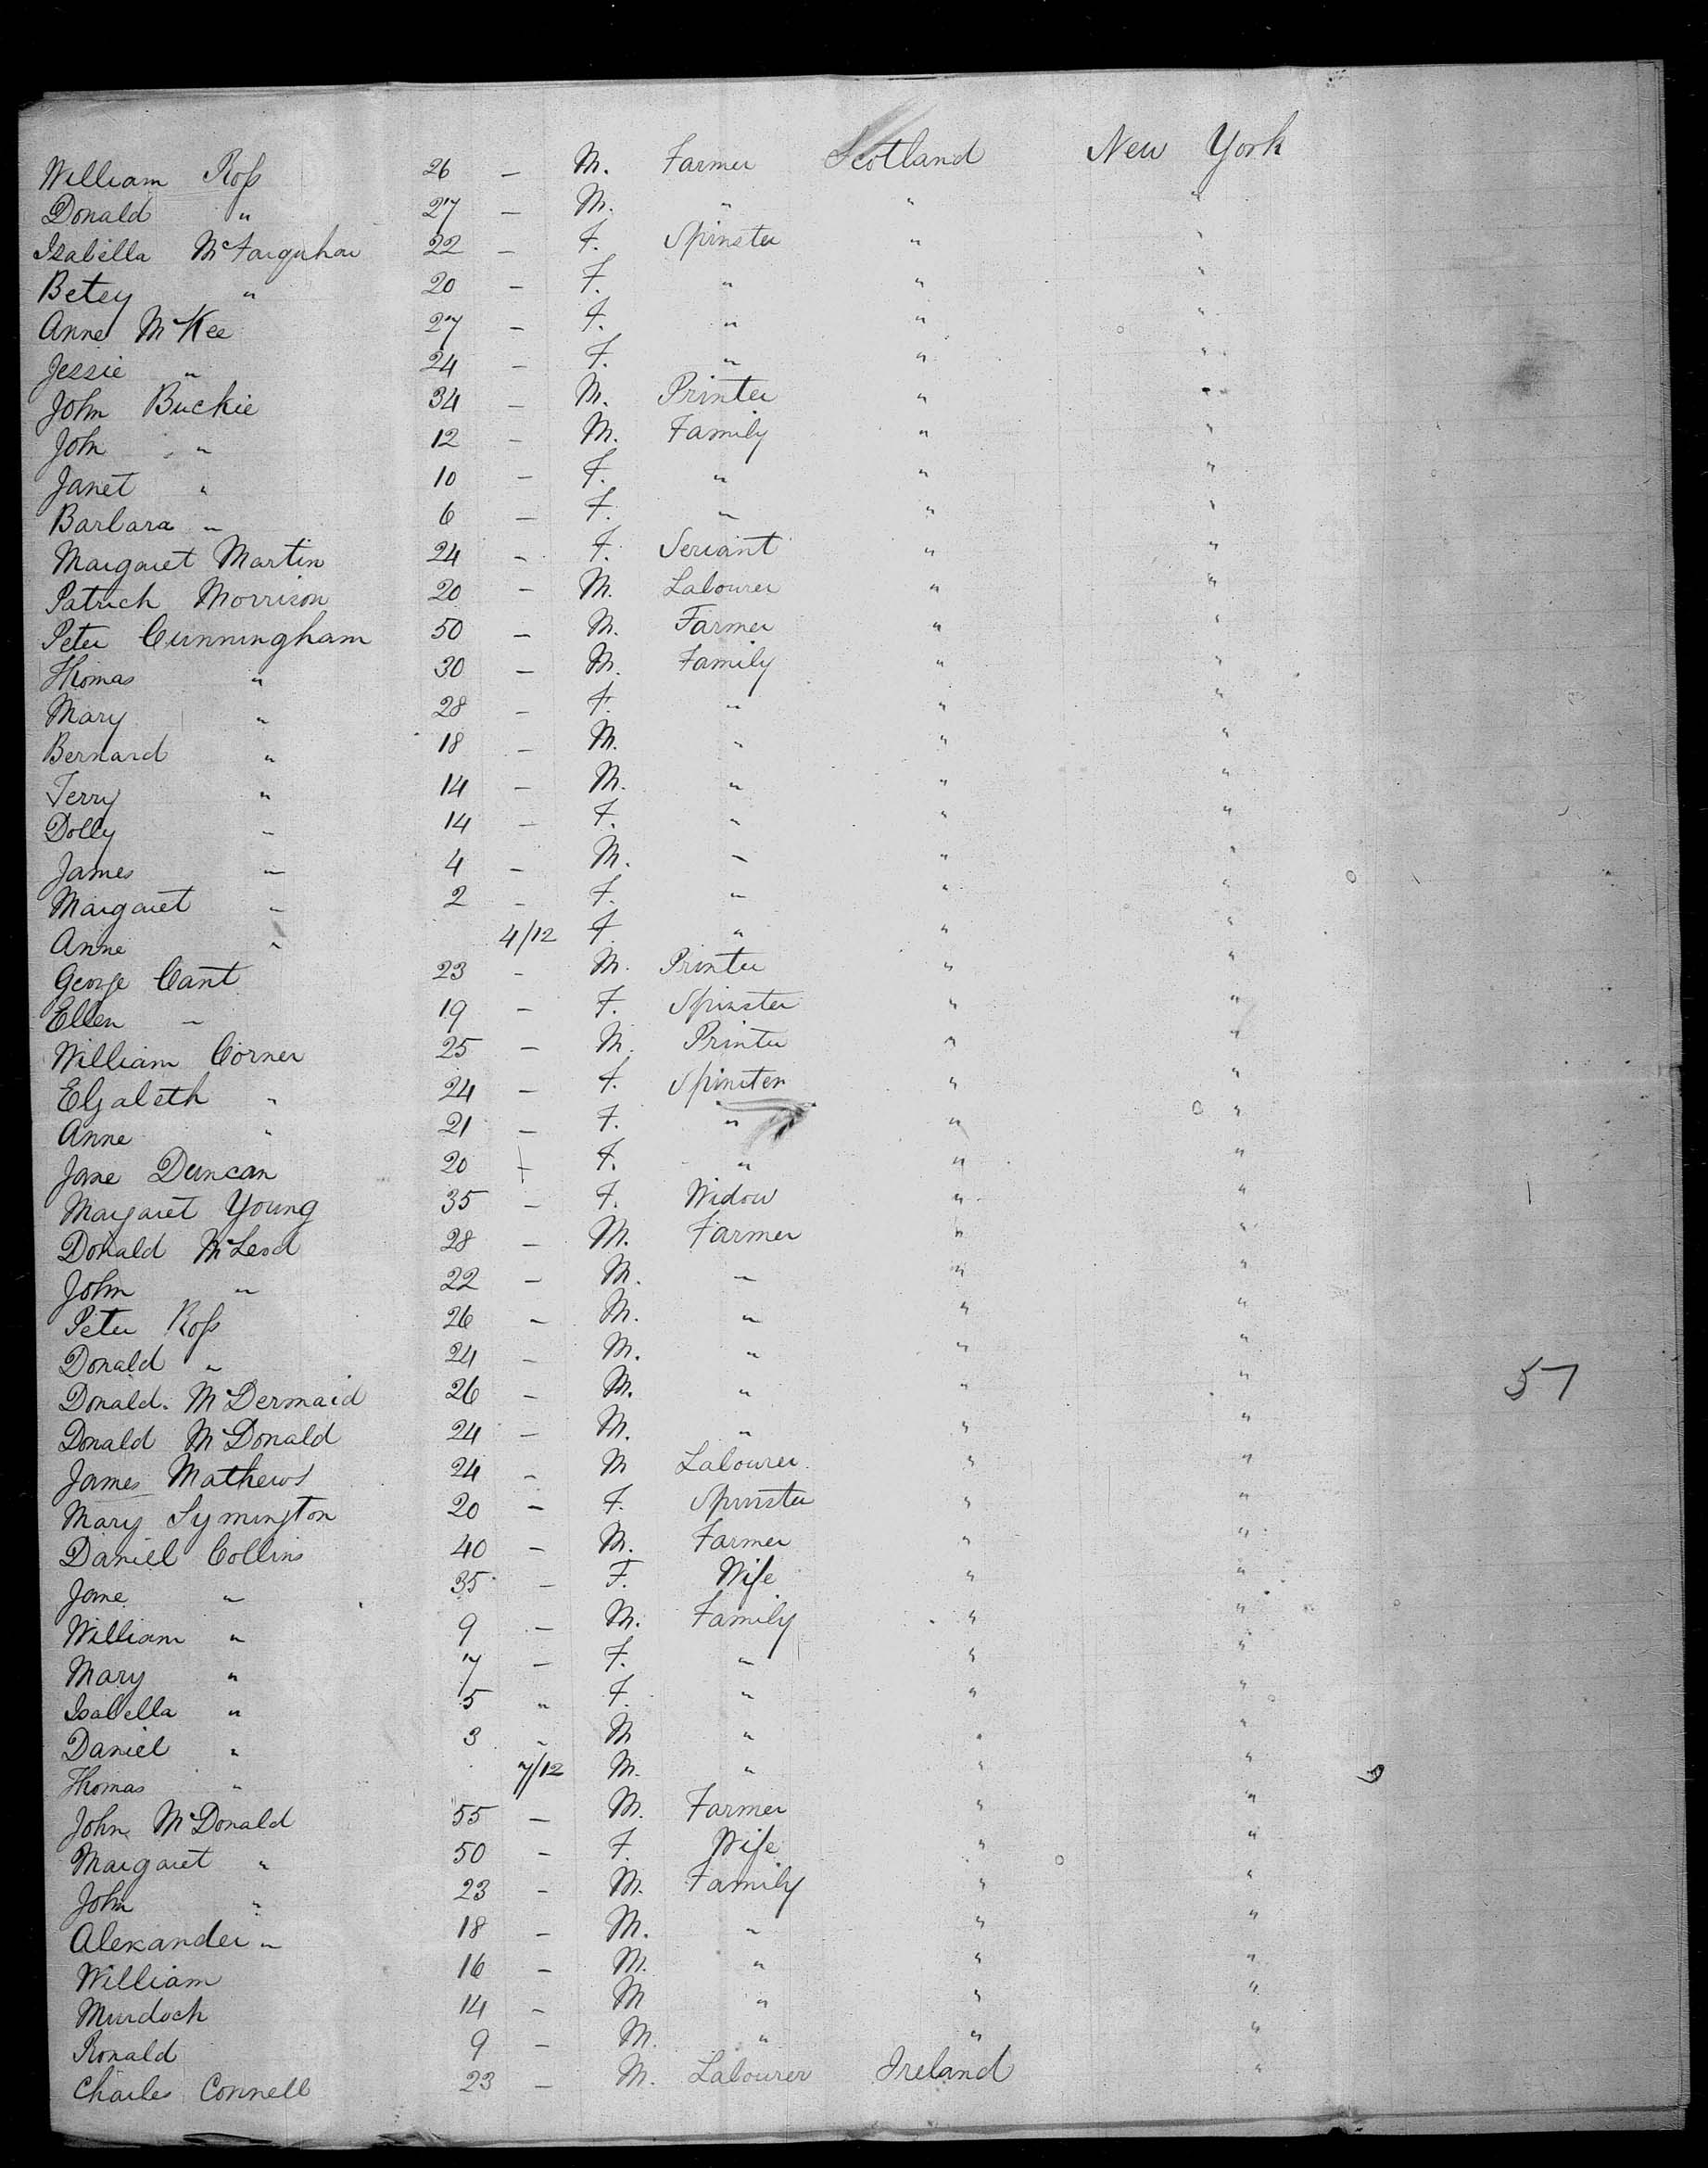 William Ross 26 — M. Farmer Scotland New York
Donald " 27 — M. " " "
Isabella McFarquhar 22 — F. Spinster " "
Betey " 20 — F. " " "
Anne McKee 27 — F. " " "
Jessie " 24 — F. " " "
John Buckie 34 — M. Printer " "
John " 12 — M. Family " "
Janet " 10 — F. " " "
Barbara " 6 — F. " " "
Margaret Martin 24 — F. Servant " "
Patrick Morrison 20 — M. Labourer " "
Peter Cunningham 50 — M. Farmer " "
Thomas " 30 — M. Family " "
Mary " 28 — F. " " "
Bernard " 18 — M. " " "
Terry " 14 — M. " " "
Dolly " 14 — F. " " "
James " 4 — M. " " "
Margaret " 2 — F. " " "
Anne " 4/12 F " " "
George Cant 23 — M. Printer " "
Ellen " 19 — F. Spinster " "
William Corner 25 — M. Printer " "
Elzabeth " 24 — F. Spinster " "
Anne " 21 — F. " " "
Jane Duncan 20 — F. " " "
Margaret Young 35 — F. Widow " "
Donald McLeod 28 — M. Farmer " "
John " 22 — M. " " "
Peter Ross 26 — M. " " "
Donald " 24 — M. " " "
Donald McDermaid 26 — M. " " " 57
Donald McDonald 24 — M. " " "
James Mathews 24 — M Labourer " "
Mary Symington 20 — F. Spinster " "
Daniel Collins 40 — M. Farmer " "
Jane " 35 — F. Wife " "
William " 9 — M. Family " "
Mary " 7 — F. " " "
Isabella " 5 " F. " " "
Daniel " 3 " M " " "
Thomas " 7/12 M. " " "
John McDonald 55 — M. Farmer " "
Margaret " 50 — F. Wife " "
John " 23 — M. Family " "
Alexander " 18 — M. " " "
William 16 — M. " " "
Murdoch 14 — M " " "
Ronald 9 — M. " " "
Charles Connell 23 — M. Labourer Ireland "